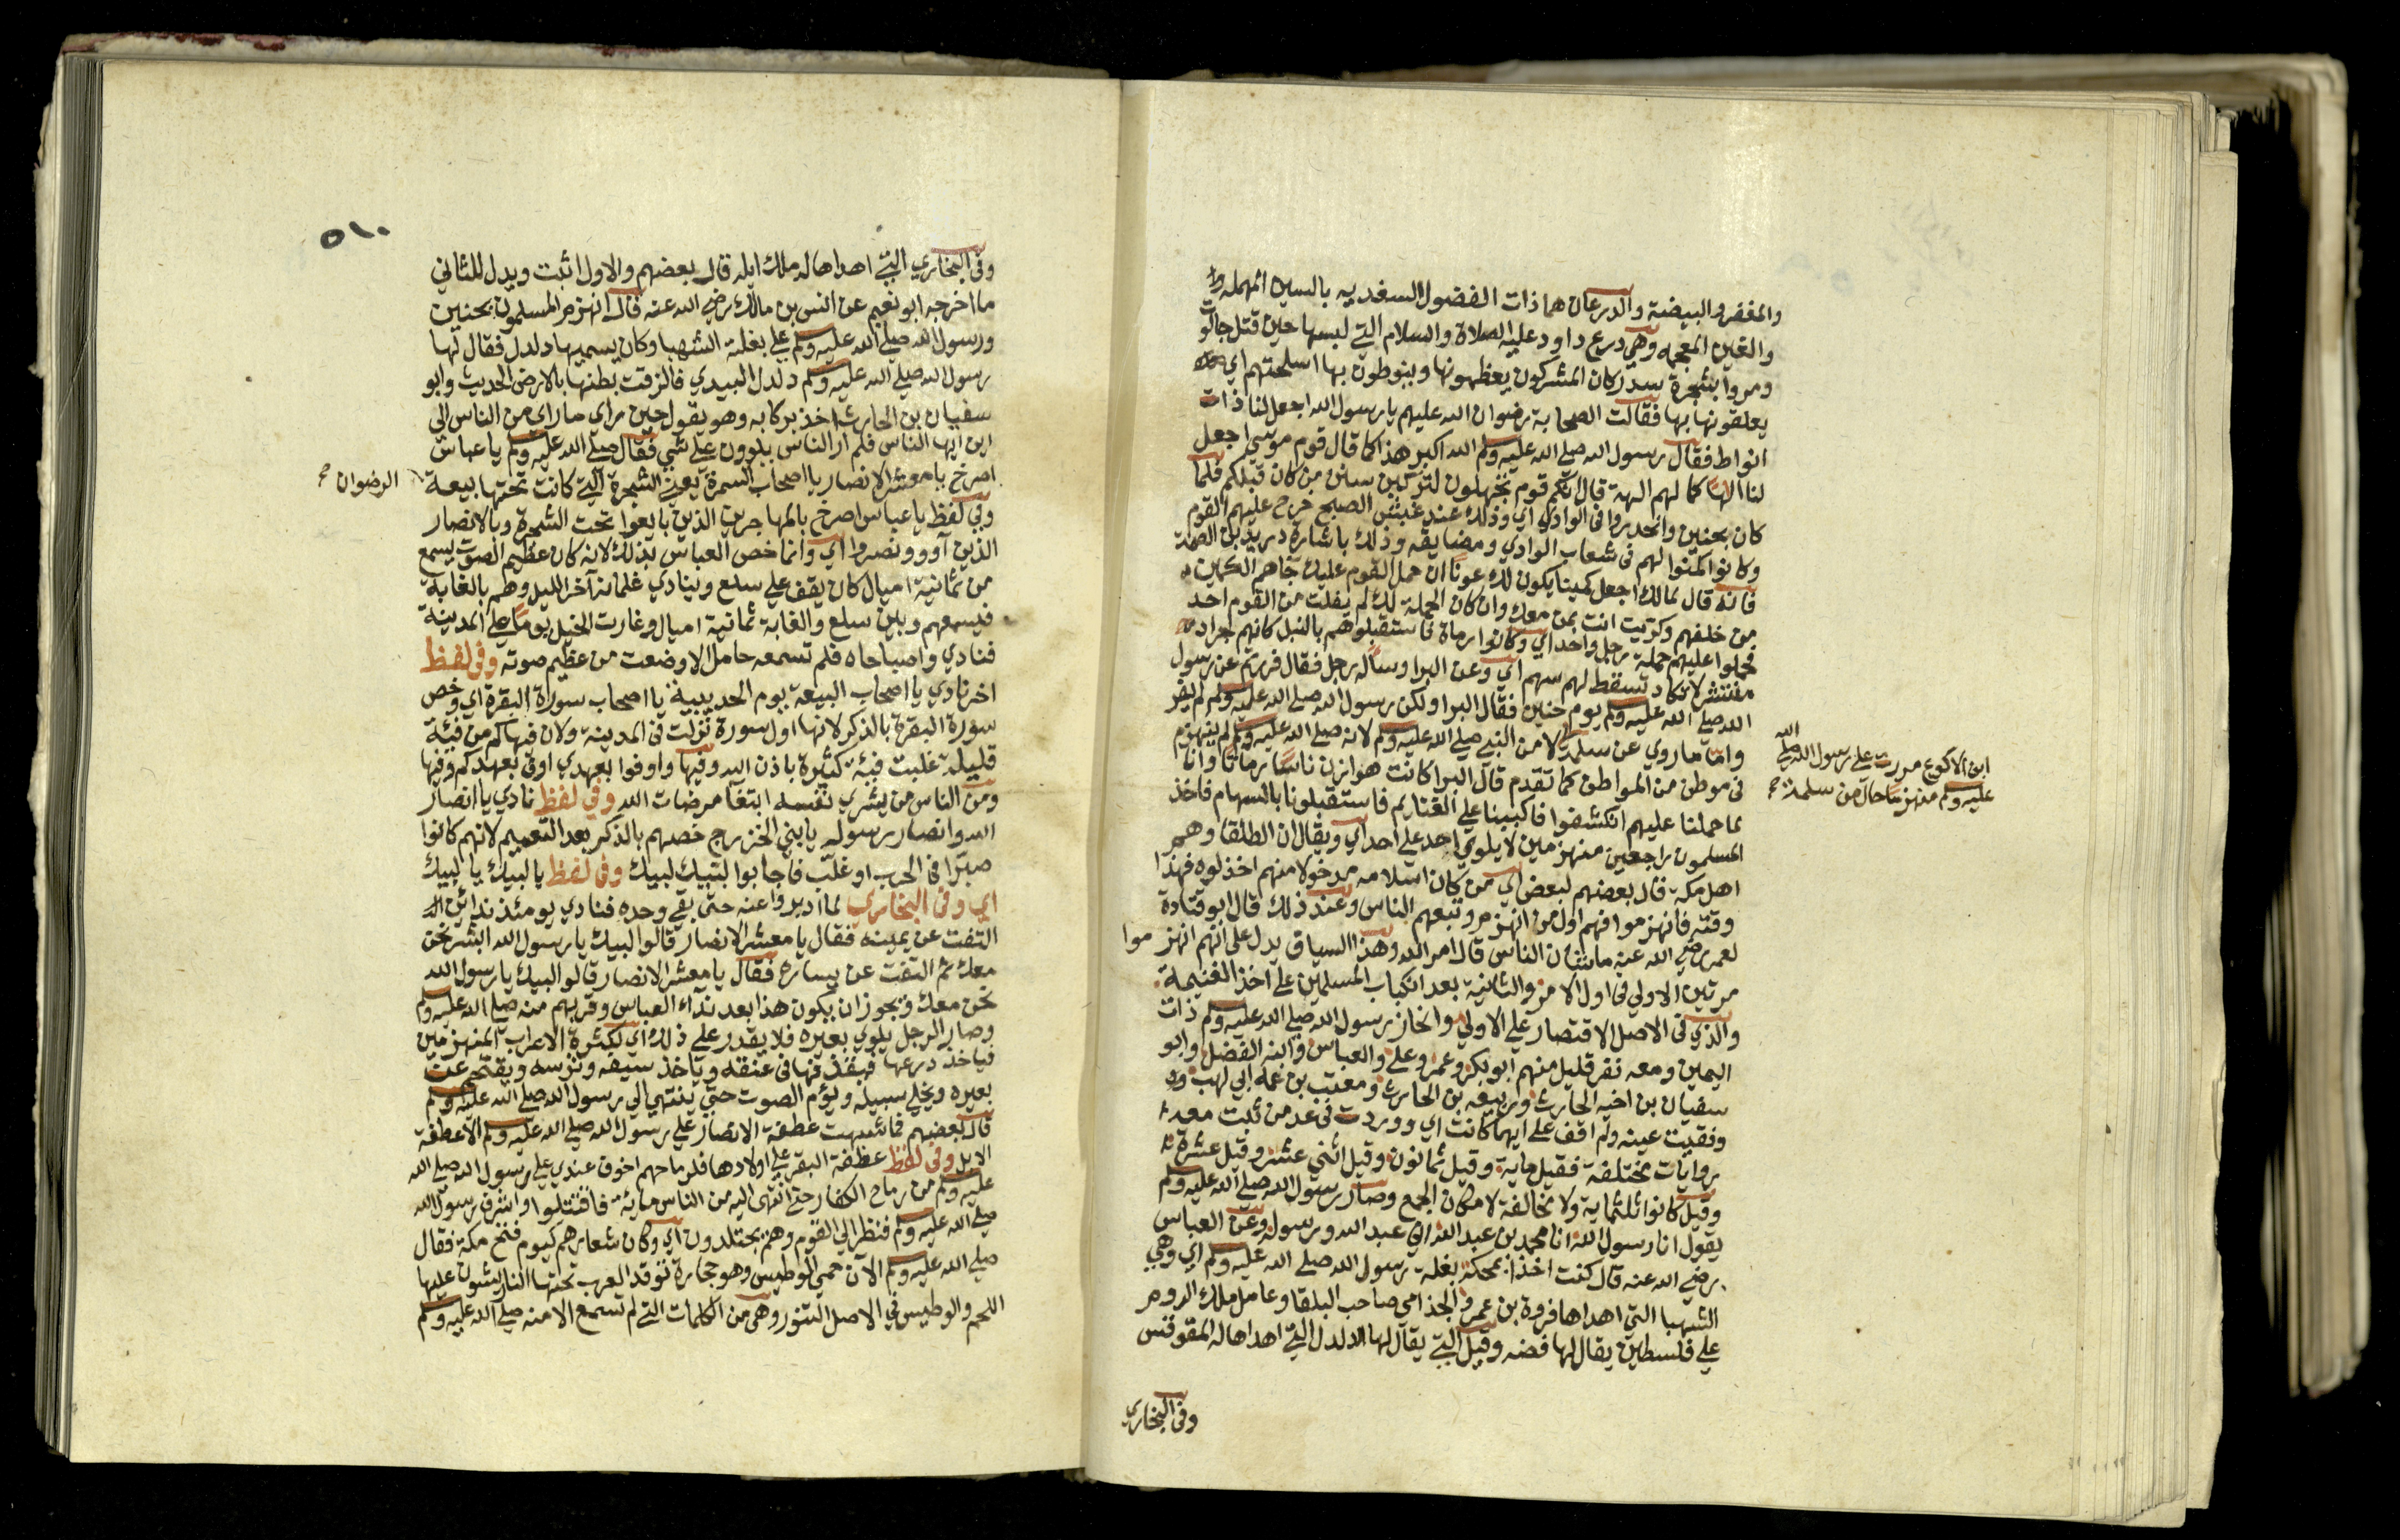 والمغفر والبيضة والدرعان هما ذات الفضول والسغديه بالسين المهملة
والغين المعجمه وهي درع داود عليه الصلاة والسلام التي لبسها حين قتل جالوت
ومروا بشجرة سدر كان المشركون يعظمونها وينوطون بها اسلحتهم اي
يعلقونها بها فقالت الصحابة رضوان الله عليهم يا رسول الله اجعل لنا ذات
انواط فقال رسول الله صلي الله عليه وسلم الله اكبر هذا كما قال قوم موسي اجعل
لنا الها كما لهم الهة قال انكم قوم تجهلون لتركبن سنن من كان قبلكم فلما
كان بحنين وانحدروا في الوادي اي وذلك عند غبش الصبح خرج عليهم القوم
وكانوا كمنوا لهم في شعاب الوادي ومضايقه وذلك باشارة دريد بن الصمة
فانه قال لمالك اجعل كمينا يكون لك عونا ان حمل القوم عليك جاهم الكمين
من خلفهم وكريت انت بمن معك وان كان الحملة لك لم يفلت من القوم احد
فحملوا عليهم حملة رجل واحد اي وكانوا رماة فاستقبلوهم بالنبل كانهم جراد
منتشر لا يكاد تسقط لهم سهم اي وعن البرا وساله رجل فقال فررتم عن رسول
الله صلي الله عليه وسلم يوم حنين فقال البرا ولكن رسول الله صلي الله عليه وسلم لم يفر
واما ما روي عن سلمة لا من النبي صلي الله عليه وسلم لانه صلي الله عليه وسلم لم ينهزم
ابن الاكوع مررت علي رسول الله صلي الله
عليه وسلم منهزما حال من سلمة
في موطن من المواطن كما تقدم قال البرا كانت هوازن ناسا رماتا وانا
لما حملنا عليهم انكشفوا فاكببنا علي الغنايم فاستقبلونا بالسهام فاخذ
المسلمون راجعين منهزمين لا يلوي احد علي احد اي ويقال ان الطلقا وهم
اهل مكة قال بعضهم لبعض اي من كان اسلامه مدخولا منهم اخذلوه فهذا
وقته فانهزموا فهم اول من انهزم وتبعهم الناس وعند ذلك قال ابو قتادة
لعمر رضي الله عنه ما شان الناس قال امر الله وهذا السياق يدل علي انهم انهزموا
مرتين الاولي في اول الامر والثانية بعد انكباب المسلمين علي اخذ الغنيمة
والذي في الاصل الاقتصار علي الاولي وانحاز رسول الله صلي الله عليه وسلم ذات
اليمين ومعه نفر قليل منهم ابو بكر وعمر وعلي والعباس وابنه الفضل وابو
سفيان بن اخيه الحارث وربيعه بن الحارث ومعتب بن عمه ابي لهب
وفقيت عينه ولم اقف علي ايهما كانت اي ووردت في عد من ثبت معه
روايات مختلفة فقيل ماية وقيل ثمانون وقيل اثني عشر وقيل عشرة
وقيل كانوا ثلثماية ولا مخالفة لامكان الجمع وصار رسول الله صلي الله عليه وسلم
يقول انا رسول الله انا محمد بن عبد الله اني عبد الله ورسوله وعن العباس
رضي الله عنه قال كنت اخذا بحكمة بغلة رسول الله صلي الله عليه وسلم اي وهي
الشهبا التي اهداها فروة بن عمرو الجذامي صاحب البلقا وعامل ملك الروم
علي فلسطين يقال لها فضه وقيل التي يقال لها الدلدل التي اهداها له المقوقس
وفي البخاري
٥١٠
وفي البخاري التي اهداها له ملك ايله قال بعضهم والاول اثبت ويدل للثاني
ما اخرجه ابو نعيم عن انس بن مالك رضي الله عنه قال انهزم المسلمون بحنين
ورسول الله صلي الله عليه وسلم علي بغلته الشهبا وكان يسميها دلدل فقال لها
رسول الله صلي الله عليه وسلم دلدل البيدي فالزقت بطنها بالارض الحديث وابو
سفيان بن الحارث اخذ بركابه وهو يقول حين راي ما راي من الناس الي
اين ايها الناس فلم ار الناس يلوون علي شي فقال صلي الله عليه وسلم يا عباس
اصرخ يا معشر الانصار يا اصحاب السمرة يعني الشجرة التي كانت تحتها بيعة
الرضوان
وفي لفظ يا عباس اصرخ بالمهاجرين الذين بايعوا تحت الشجرة وبالانصار
الذين آووا ونصروا اي وانما خص العباس بذلك لانه كان عظيم الصوت يسمع
من ثمانية اميال كان يقف علي سلع وينادي غلمانه آخر الليل وهم بالغابة
فيسمعهم وبين سلع والغابة ثمانية اميال وغارت الخيل يوما علي المدينة
فنادي واصباحاه فلم تسمعه حامل الا وضعت من عظيم صوته وفي لفظ
اخر نادي يا اصحاب البيعة يوم الحديبية يا اصحاب سورة البقرة اي وخص
سورة البقرة بالذكر لانها اول سورة نزلت في المدينة ولان فيها كم من فئة
قليلة غلبت فئة كثيرة باذن الله وفيها واوفوا بعهدي اوف بعهدكم وفيها
ومن الناس من يشري نفسه ابتغا مرضات الله وفي لفظ نادي يا انصار
الله وانصار رسوله يا بني الخزرج خصهم بالذكر بعد التعميم لانهم كانوا
صبرا في الحرب او غلب فاجابوا لبيك لبيك وفي لفظ يا لبيك يا لبيك
اي وفي البخاري لما ادبروا عنه حتي بقي وحده فنادي يومئذ ندائين
التفت عن يمينه فقال يا معشر الانصار قالوا لبيك يا رسول الله ابشر نحن
معك ثم التفت عن يساره فقال يا معشر الانصار قالوا لبيك يا رسول الله
نحن معك ويجوز ان يكون هذا بعد نداء العباس وقربهم منه صلي الله عليه وسلم
وصار الرجل يلوي بعيره فلا يقدر علي ذلك اي لكثرة الاعراب المنهزمين
فياخذ درعه فيقذفها في عنقه وياخذ سيفه وترسه ويقتحم عن
بعيره ويخلي سبيله ويؤم الصوت حتي ينتهي الي رسول الله صلي الله عليه وسلم
قال بعضهم فما شبهت عطفة الانصار علي رسول الله صلي الله عليه وسلم الا عطفة
الابل وفي لفظ عطفة البقر علي اولادها فلرماحهم اخوف عندي علي رسول الله صلي الله
عليه وسلم من رماح الكفار حتي انتهي اليه من الناس ماية فاقتتلوا واشرف رسول الله
صلي الله عليه وسلم فنظر الي القوم وهم يجتلدون اي وكان شعارهم كيوم فتح مكة فقال
صلي الله عليه وسلم الآن حمي الوطيس وهو حجارة توقد العرب تحتها النار يشون عليها
اللحم والوطيس في الاصل التنور وهي من الكلمات التي لم تسمع الا منه صلي الله عليه وسلم